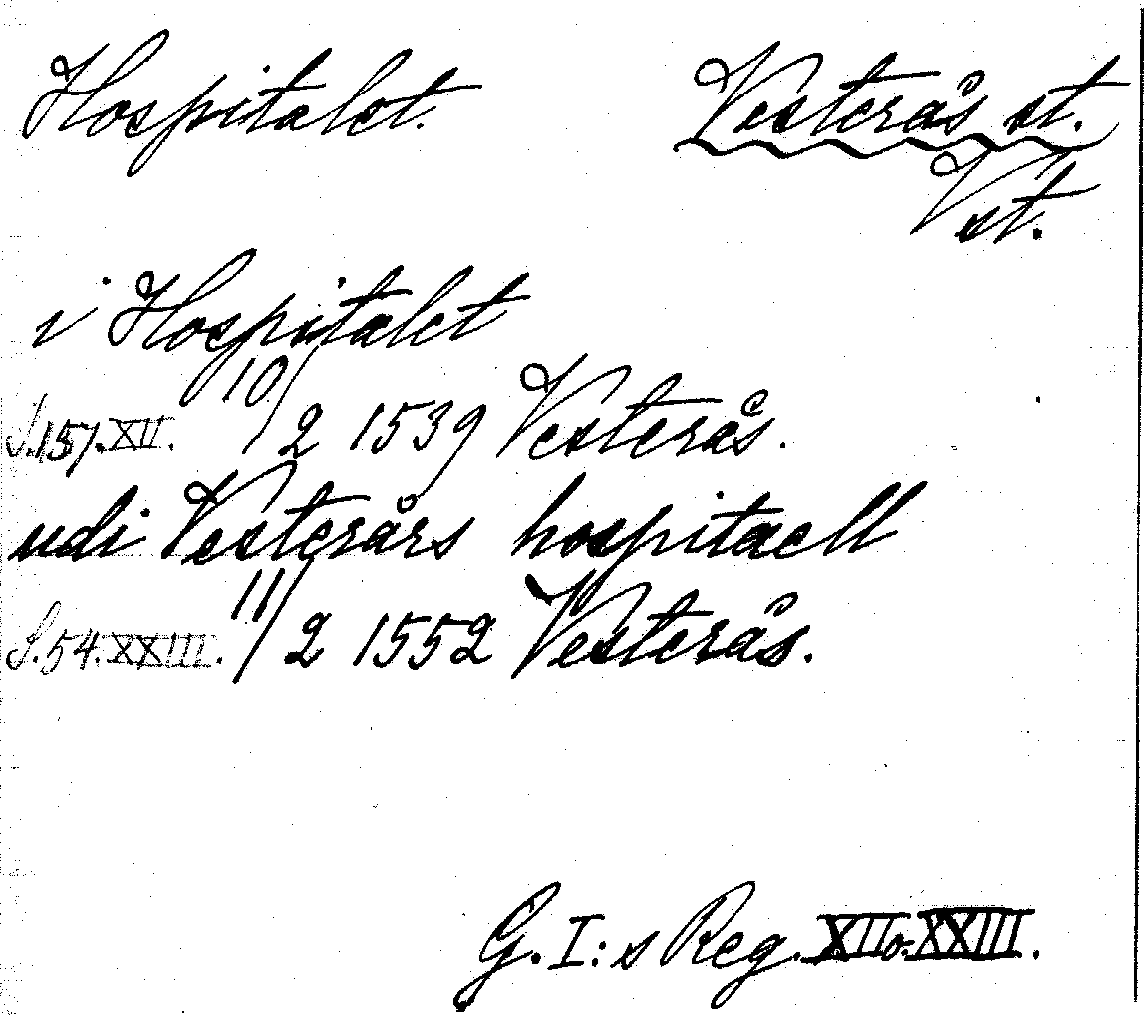 Hospitalet. Vesterås st.
Vst.
i Hospitalet
S.157.XII. 10/2 1539 Vesterås.
udi Vesterårs hospitaell
S.54.XXIII. 11/2 1552 Vesterås.
G.I:s Reg. XII o. XXIII.